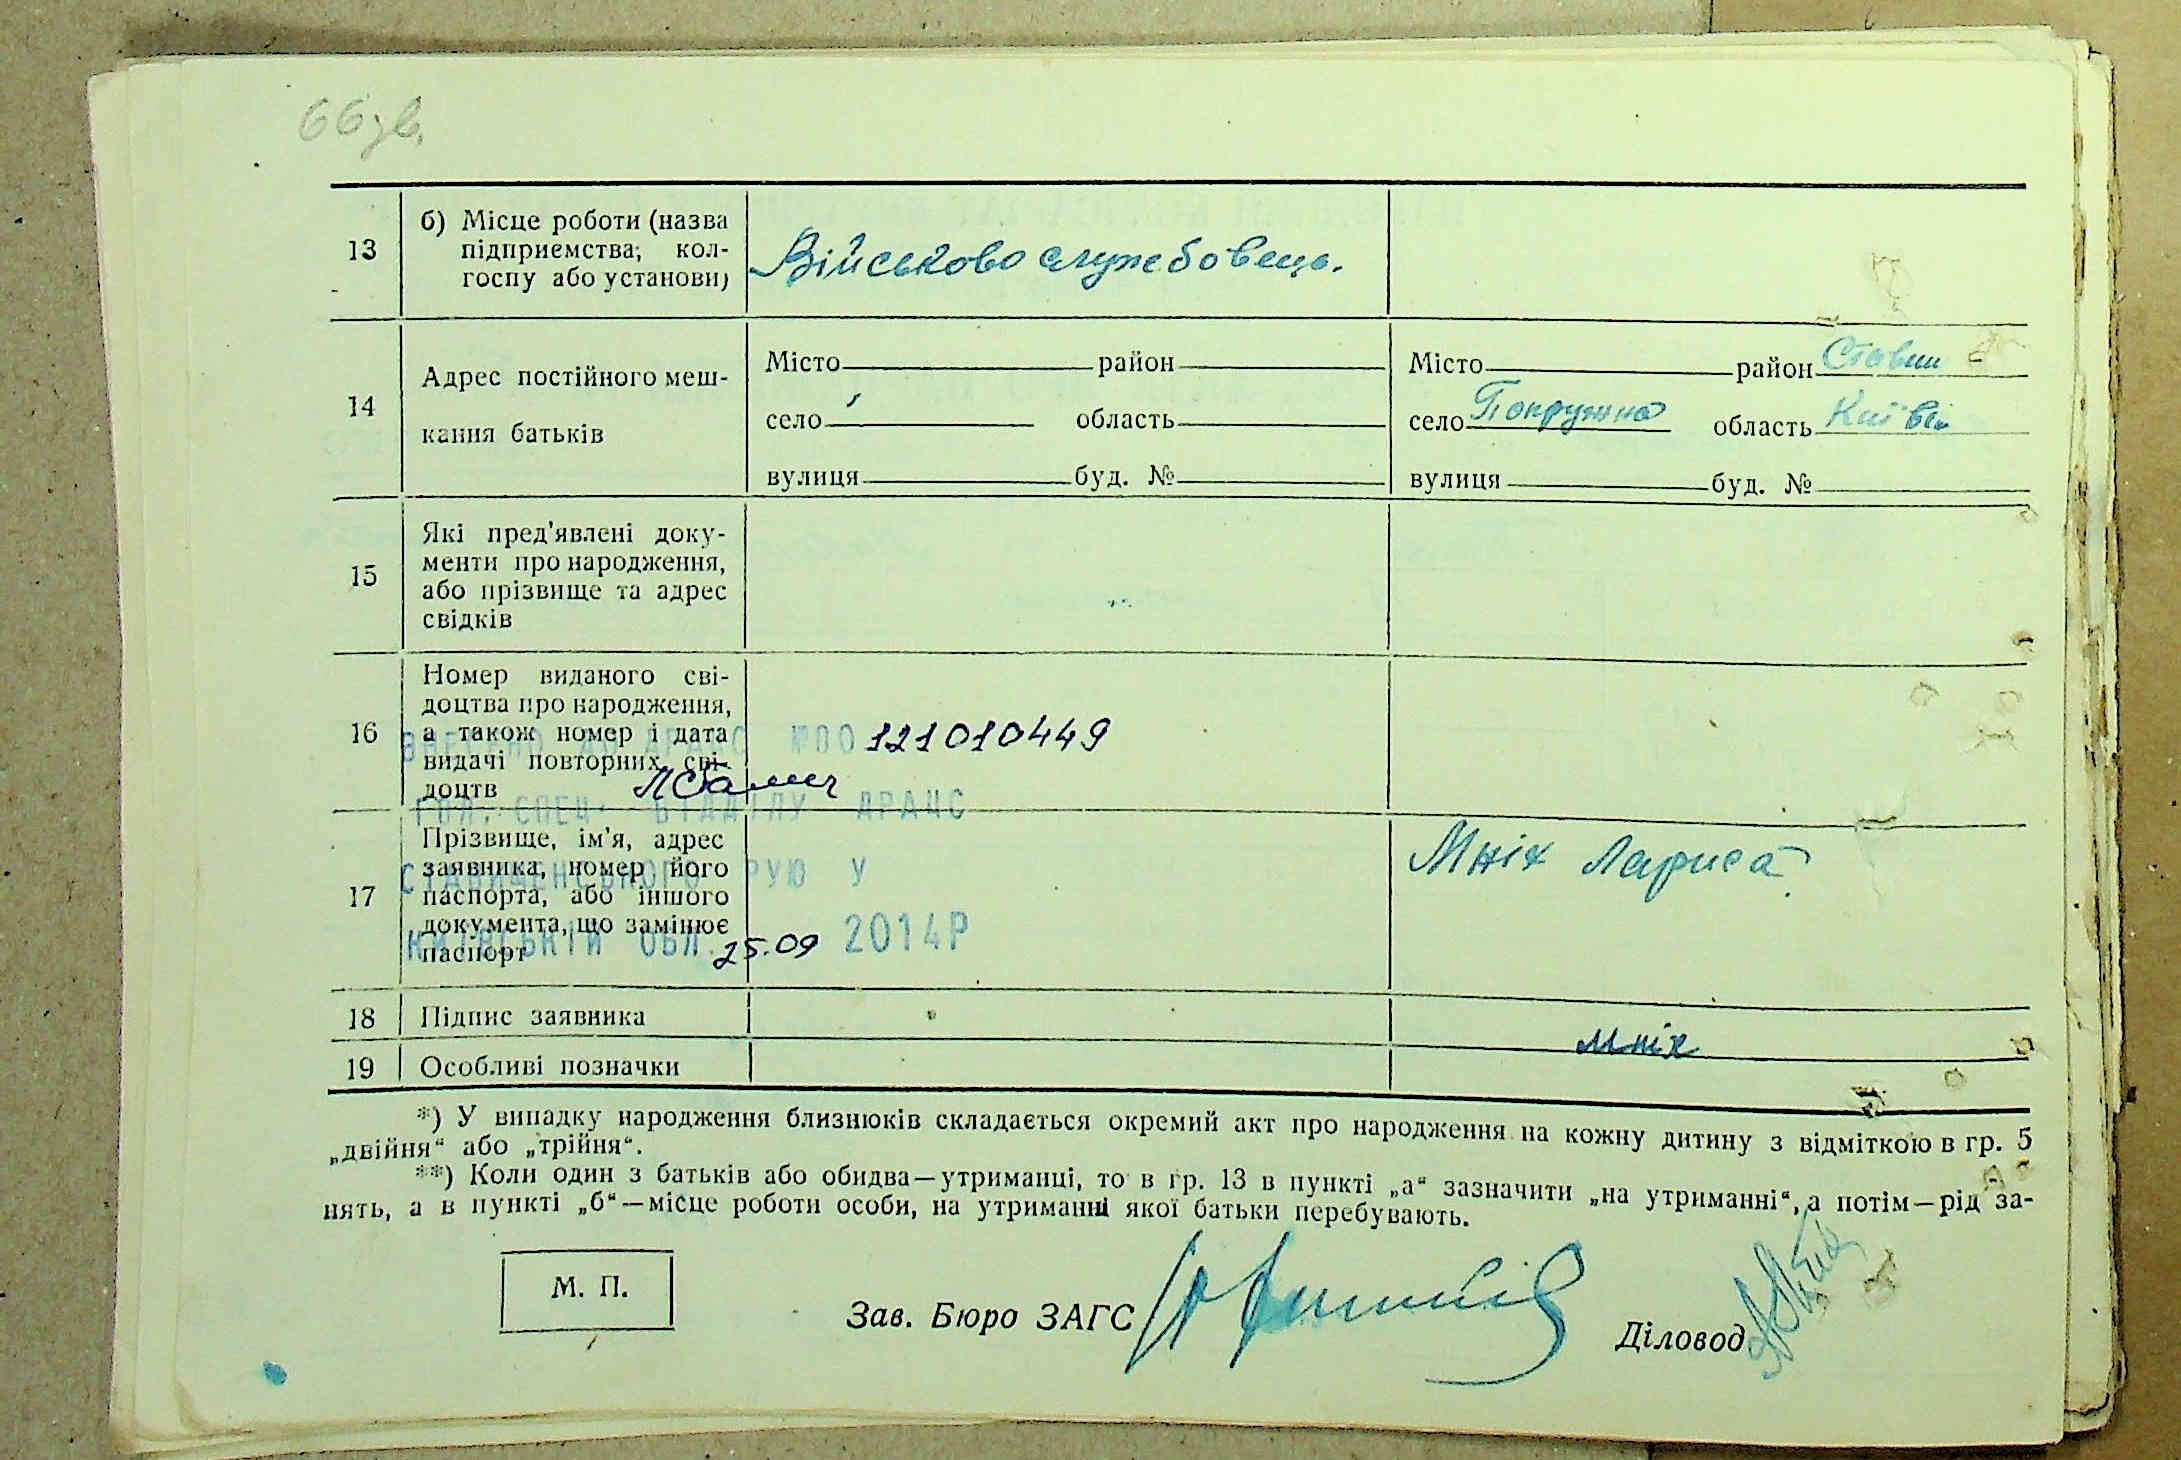 66 зв.
13 б) Місце роботи (назва
підприємства, кол-
госпу або установи)
Військово службовець.
14 Адрес постійного меш-
кання батьків
Місто район
село область
вулиця буд. №
Місто район Стави
село Попружна область Київ
вулиця буд. №
15 Які пред'явлені доку-
менти про народження,
або прізвище та адрес
свідків
16 Номер виданого сві-
доцтва про народження,
а також номер і дата
видачі повторних сві-
доцтв
ВНЕСЕНО ДО ДРАЦС №00 121010449
ГОЛ. СПЕЦ. ВІДДІЛУ ДРАЦС
СТАВИЩЕНСЬКОГО РУЮ У
КИЇВСЬКІЙ ОБЛ. 25.09 2014Р
17 Прізвище, ім'я, адрес
заявника, номер його
паспорта, або іншого
документа, що замінює
паспорт
Мніх Лариса
18 Підпис заявника
Мніх
19 Особливі позначки
*) У випадку народження близнюків складається окремий акт про народження на кожну дитину з відміткою в гр. 5
„двійня“ або „трійня“.
**) Коли один з батьків або обидва—утриманці, то в гр. 13 в пункті „а“ зазначити „на утриманні“, а потім—рід за-
нять, а в пункті „б“—місце роботи особи, на утриманні якої батьки перебувають.
М. П.
Зав. Бюро ЗАГС
Діловод